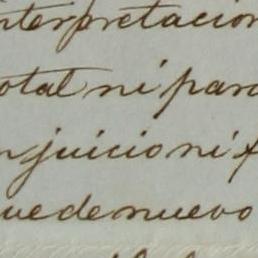 nterpretacion
otal ni para
n juicio ni f
ue de nuevo